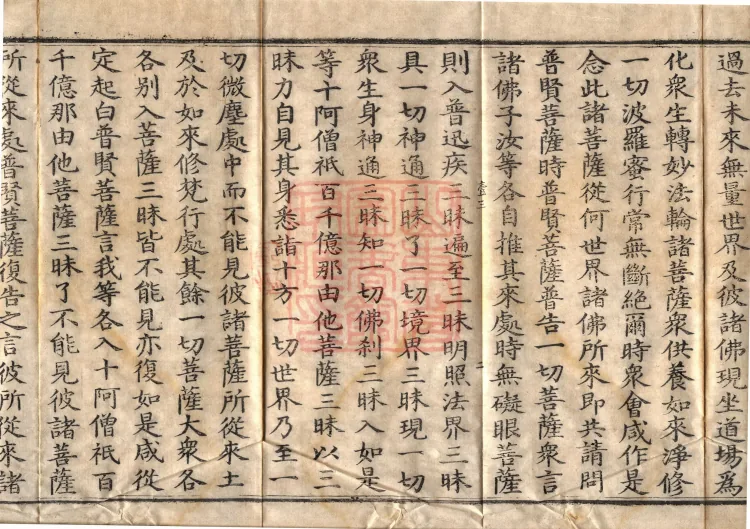 過去未來無量世界及彼諸佛現坐道場為
化衆生轉妙法輪諸菩薩衆供養如來淨修
一切波羅蜜行常無斷絕爾時衆會咸作是
念此諸菩薩從何世界諸佛所來即共請問
普賢菩薩時普賢菩薩普告一切菩薩衆言
諸佛子汝等各自推其來處時無礙眼菩薩
則入普迅疾三昧遍至三昧明照法界三昧
具一切神通三昧了一切境界三昧現一切
衆生身神通三昧知一切佛刹三昧入如是
等十阿僧祇百千億那由他菩薩三昧以三
昧力自見其身悉詣十方一切世界乃至一
切微塵處中而不能見彼諸菩薩所從來土
及於如來修梵行處其餘一切菩薩大衆各
各别入菩薩三昧皆不能見亦復如是咸從
定起白普賢菩薩言我等各入十阿僧祇百
千億那由他菩薩三昧了不能見彼諸菩薩
所從來處普賢菩薩復告之言彼所從來諸